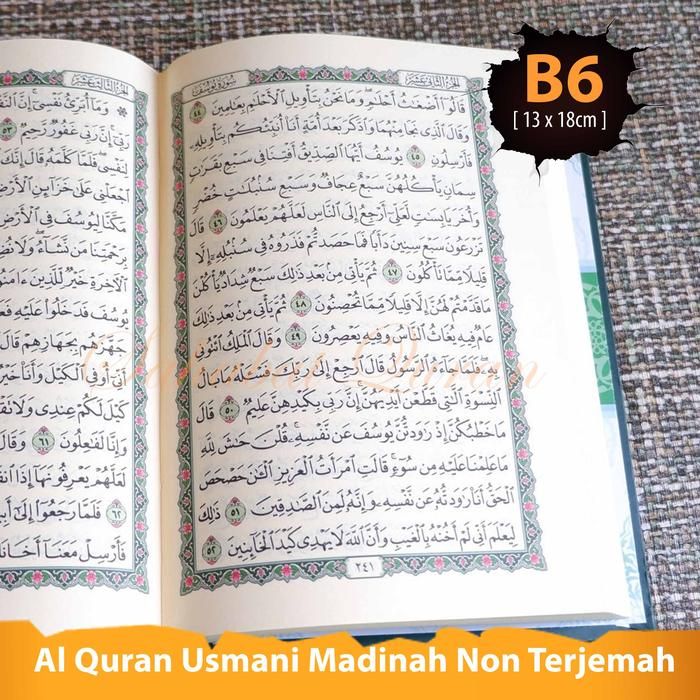 B6
[ 13 x 18cm ]
سورة يوسف
الجزء الثاني عشر
قَالُوٓا۟ أَضْغَٰثُ أَحْلَٰمٍ وَمَا نَحْنُ بِتَأْوِيلِ ٱلْأَحْلَٰمِ بِعَٰلِمِينَ ٤٤
وَقَالَ ٱلَّذِى نَجَا مِنْهُمَا وَٱدَّكَرَ بَعْدَ أُمَّةٍ أَنَا۠ أُنَبِّئُكُم بِتَأْوِيلِهِۦ
فَأَرْسِلُونِ ٤٥ يُوسُفُ أَيُّهَا ٱلصِّدِّيقُ أَفْتِنَا فِى سَبْعِ بَقَرَٰتٍ
سِمَانٍ يَأْكُلُهُنَّ سَبْعٌ عِجَافٌ وَسَبْعِ سُنۢبُلَٰتٍ خُضْرٍ
وَأُخَرَ يَابِسَٰتٍ لَّعَلِّىٓ أَرْجِعُ إِلَى ٱلنَّاسِ لَعَلَّهُمْ يَعْلَمُونَ ٤٦ قَالَ
تَزْرَعُونَ سَبْعَ سِنِينَ دَأَبًا فَمَا حَصَدتُّمْ فَذَرُوهُ فِى سُنۢبُلِهِۦٓ إِلَّا
قَلِيلًا مِّمَّا تَأْكُلُونَ ٤٧ ثُمَّ يَأْتِى مِنۢ بَعْدِ ذَٰلِكَ سَبْعٌ شِدَادٌ يَأْكُلْنَ
مَا قَدَّمْتُمْ لَهُنَّ إِلَّا قَلِيلًا مِّمَّا تُحْصِنُونَ ٤٨ ثُمَّ يَأْتِى مِنۢ بَعْدِ ذَٰلِكَ
عَامٌ فِيهِ يُغَاثُ ٱلنَّاسُ وَفِيهِ يَعْصِرُونَ ٤٩ وَقَالَ ٱلْمَلِكُ ٱئْتُونِى
بِهِۦ فَلَمَّا جَآءَهُ ٱلرَّسُولُ قَالَ ٱرْجِعْ إِلَىٰ رَبِّكَ فَسْـَٔلْهُ مَا بَالُ
ٱلنِّسْوَةِ ٱلَّٰتِى قَطَّعْنَ أَيْدِيَهُنَّ إِنَّ رَبِّى بِكَيْدِهِنَّ عَلِيمٌ ٥٠ قَالَ
مَا خَطْبُكُنَّ إِذْ رَٰوَدتُّنَّ يُوسُفَ عَن نَّفْسِهِۦ قُلْنَ حَٰشَ لِلَّهِ
مَا عَلِمْنَا عَلَيْهِ مِن سُوٓءٍ قَالَتِ ٱمْرَأَتُ ٱلْعَزِيزِ ٱلْـَٰٔنَ حَصْحَصَ
ٱلْحَقُّ أَنَا۠ رَٰوَدتُّهُۥ عَن نَّفْسِهِۦ وَإِنَّهُۥ لَمِنَ ٱلصَّٰدِقِينَ ٥١ ذَٰلِكَ
لِيَعْلَمَ أَنِّى لَمْ أَخُنْهُ بِٱلْغَيْبِ وَأَنَّ ٱللَّهَ لَا يَهْدِى كَيْدَ ٱلْخَآئِنِينَ ٥٢
٢٤١
الجزء الثالث عشر
وَمَآ أُبَرِّئُ نَفْسِىٓ إِنَّ
رَبِّىٓ إِنَّ رَبِّى غَفُورٌ رَّحِيمٌ ٥٣
لِنَفْسِى فَلَمَّا كَلَّمَهُۥ قَالَ إِنَّكَ
ٱجْعَلْنِى عَلَىٰ خَزَآئِنِ ٱلْأَرْضِ
مَكَّنَّا لِيُوسُفَ فِى ٱلْأَرْضِ
بِرَحْمَتِنَا مَن نَّشَآءُ وَلَا
ٱلْـَٔاخِرَةِ خَيْرٌ لِّلَّذِينَ ءَامَنُوا۟
يُوسُفَ فَدَخَلُوا۟ عَلَيْهِ
جَهَّزَهُم بِجَهَازِهِمْ قَالَ
أَنِّىٓ أُوفِى ٱلْكَيْلَ وَأَنَا۠ خَيْرُ
كَيْلَ لَكُمْ عِندِى وَلَا
وَإِنَّا لَفَٰعِلُونَ ٦١ وَقَالَ
لَعَلَّهُمْ يَعْرِفُونَهَآ إِذَا
٦٢ فَلَمَّا رَجَعُوٓا۟ إِلَىٰٓ
فَأَرْسِلْ مَعَنَآ أَخَانَا
Sahabat Quran
Al Quran Usmani Madinah Non Terjemah